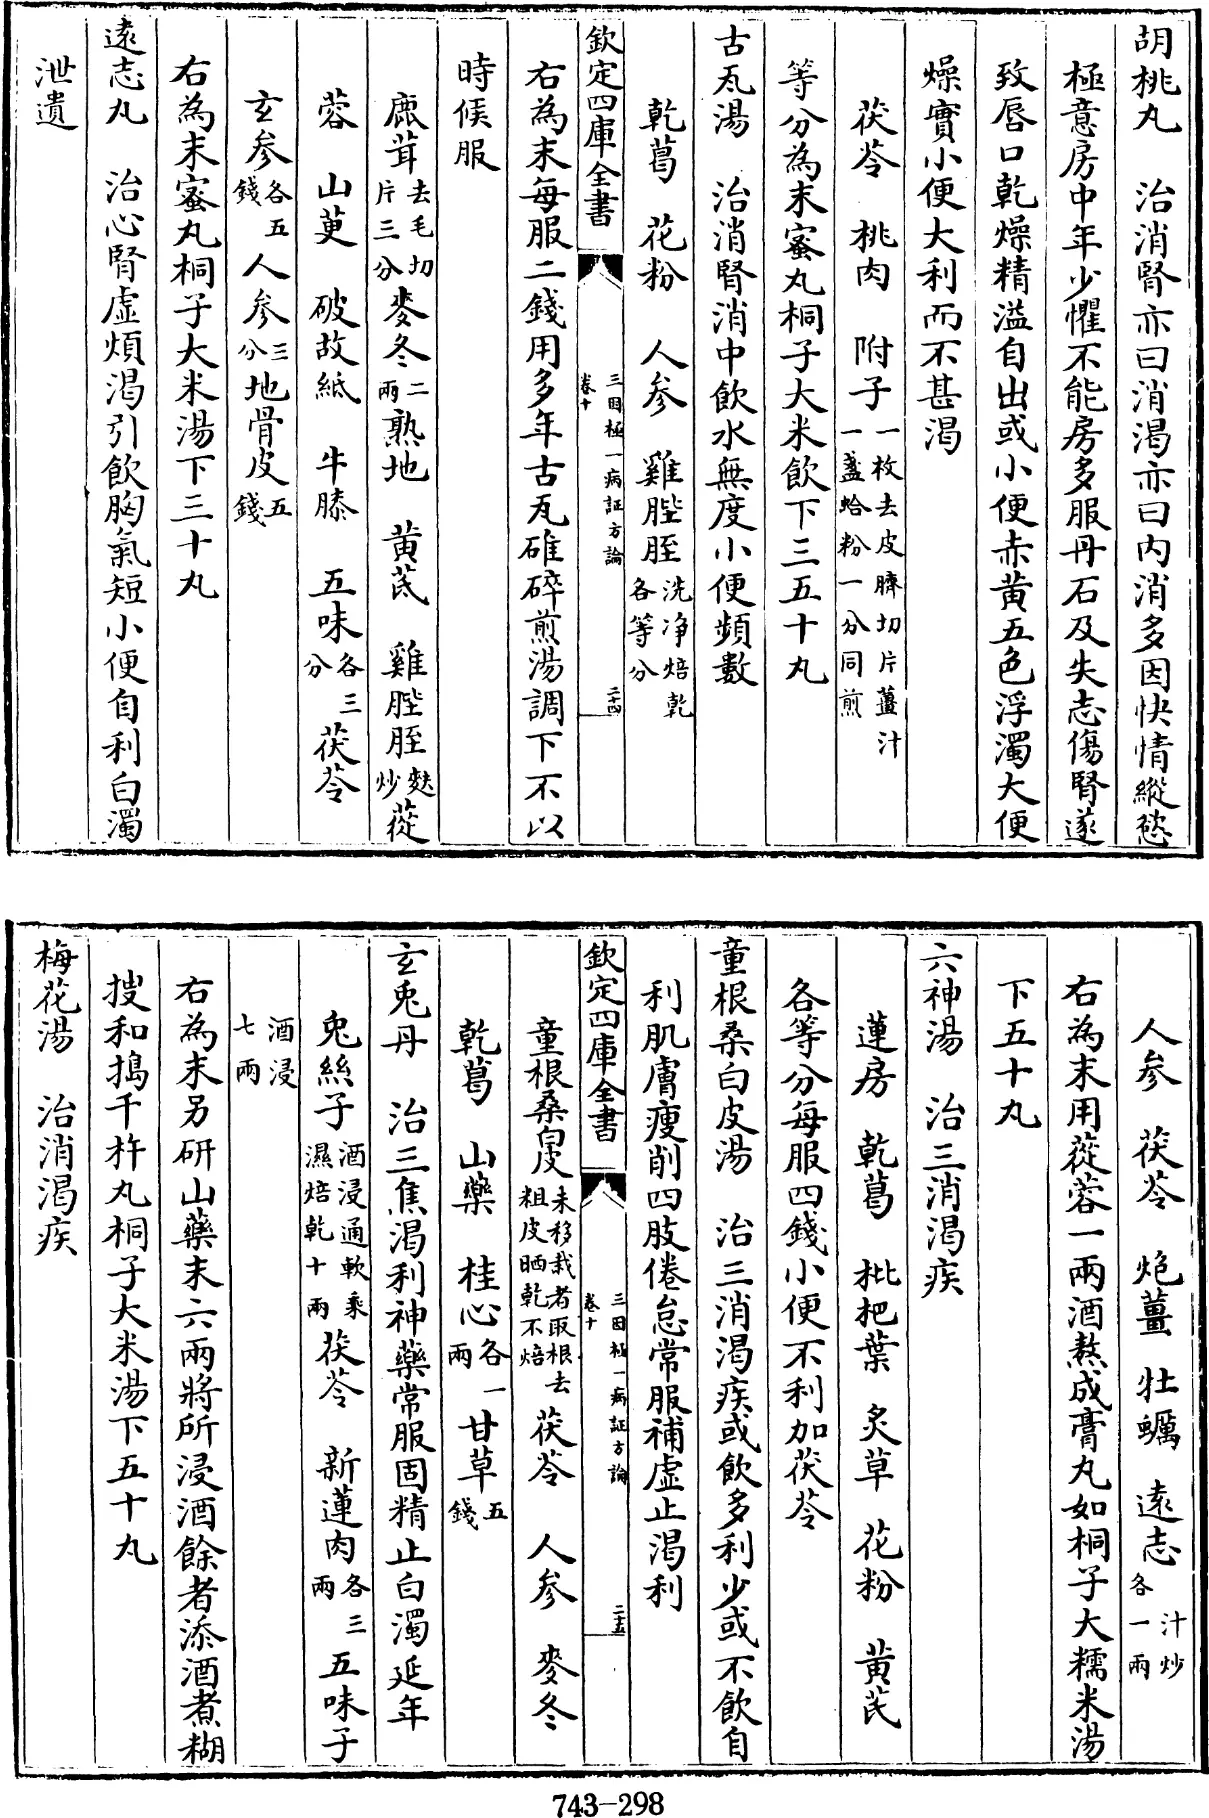 胡桃丸　治消腎亦曰消渴亦曰内消多因快情縱慾
極意房中年少懼不能房多服丹石及失志傷腎遂
致唇口乾燥精溢自出或小便赤黄五色浮濁大便
燥實小便大利而不甚渴
茯苓　桃肉　附子一枚去皮臍切片薑汁一盞蛤粉一分同煎
等分為末蜜丸桐子大米飲下三五十丸
古瓦湯　治消腎消中飲水無度小便頻數
乾葛　花粉　人參　雞膍胵洗净焙乾各等分
欽定四庫全書　三因極一病証方論卷十　二十四
右為末每服二錢用多年古瓦碓碎煎湯調下不以
時候服
鹿茸去毛切片三分麥冬二兩熟地　黄芪　雞膍胵麩炒蓯
蓉　山萸　破故紙　牛膝　五味各三分茯苓
玄參各五錢人參三分地骨皮五錢
右為末蜜丸桐子大米湯下三十丸
遠志丸　治心腎虚煩渴引飲胸氣短小便自利白濁
泄遺
人參　茯苓　炮薑　牡蠣　遠志汁炒各一兩
右為末用蓯蓉一兩酒熬成膏丸如桐子大糯米湯
下五十丸
六神湯　治三消渴疾
蓮房　乾葛　枇杷葉　炙草　花粉　黄芪
各等分每服四錢小便不利加茯苓
童根桑白皮湯　治三消渴疾或飲多利少或不飲自
利肌膚瘦削四肢倦怠常服補虚止渴利
欽定四庫全書　三因極一病証方論卷十　二十五
童根桑白皮未移栽者取根去粗皮晒乾不焙　茯苓　人參　麥冬
乾葛　山藥　桂心各一兩　甘草五錢
玄兎丹　治三焦渴利神藥常服固精止白濁延年
兔絲子酒浸通軟乘濕焙乾十兩茯苓　新蓮肉各三兩　五味子
酒浸七兩
右為末另研山藥末六兩將所浸酒餘者添酒煮糊
搜和搗千杵丸桐子大米湯下五十丸
梅花湯　治消渴疾
743-298